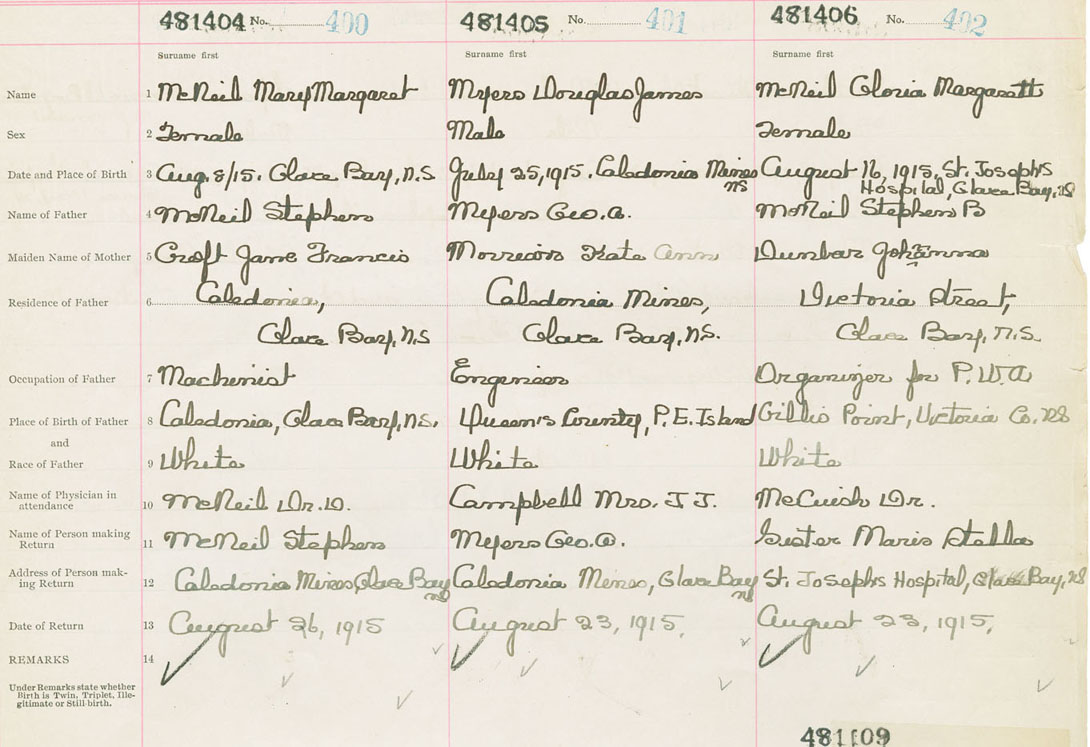 481404 No. 400 481405 No. 401 481406 No. 402
Surname first Surname first Surname first
Name 1 McNeil Mary Margaret Myers Douglas James McNeil Gloria Margaratt
Sex 2 Female Male Female
Date and Place of Birth 3 Aug. 8/15. Glace Bay, N.S July 25, 1915. Caledonia Mines NS August 16, 1915, St. Josephs
Hospital, Glace Bay, NS
Name of Father 4 McNeil Stephen Myers Geo. A. McNeil Stephen B
Maiden Name of Mother 5 Croft Jane Francis Kate Ann Dunbar Johanna
Residence of Father 6 Caledonia, Caledonia Mines, Victoria Street,
Glace Bay, N.S Glace Bay, N.S. Glace Bay, N.S.
Occupation of Father 7 Machinist Engineer Organizer for P.W.A
Place of Birth of Father 8 Caledonia, Glace Bay, N.S. Queen's County, P.E. Island Gillis Point, Victoria Co. NS
and
Race of Father 9 White White White
Name of Physician in
attendance 10 McNeil Dr. D. Campbell Mrs. J J. McCuish Dr.
Name of Person making
Return 11 McNeil Stephen Myers Geo. A. Sister Maris Stella
Address of Person mak-
ing Return 12 Caledonia Mines, Glace Bay NS Caledonia Mines, Glace Bay NS St. Josephs Hospital, Glace Bay, NS
Date of Return 13 August 26, 1915 August 23, 1915. August 23, 1915.
REMARKS 14
Under Remarks state whether
Birth is Twin, Triplet, Ille-
gitimate or Still-birth.
481109